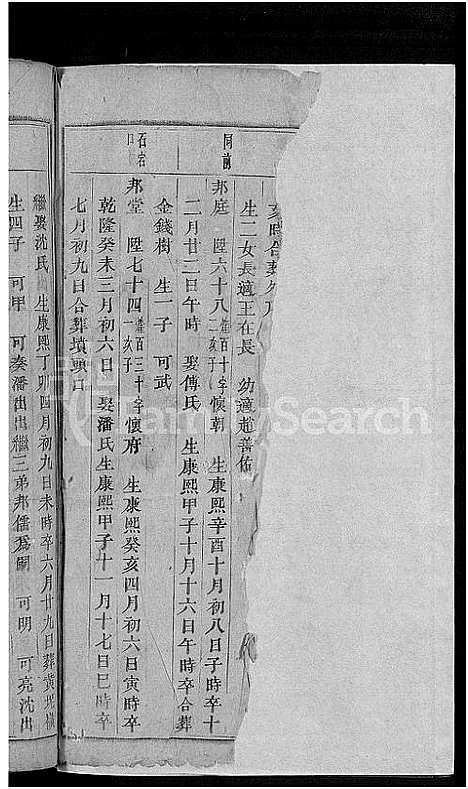 亥時合葬
生二女長適王在長 幼適趙善佑
同前
邦庭 陞六十八 百十 二亥子 字懷朝 生康熙辛酉十月初八日子時卒十
二月廿二日午時 娶傅氏 生康熙甲子十月十六日午時卒合葬
金錢樹 生一子 可武
石宕口
邦堂 陞七十四 百三十 一亥子 字懷府 生康熙癸亥四月初六日寅時卒
乾隆癸未三月初六日 娶潘氏生康熙甲子十一月十七日巳時卒
七月初九日合葬墳頭口
繼娶沈氏 生康熙丁卯四月初九日未時卒六月廿九日葬黃
生四子 可甲 可奏潘出出繼三弟邦儒為嗣 可明 可亮沈出
FamilySearch